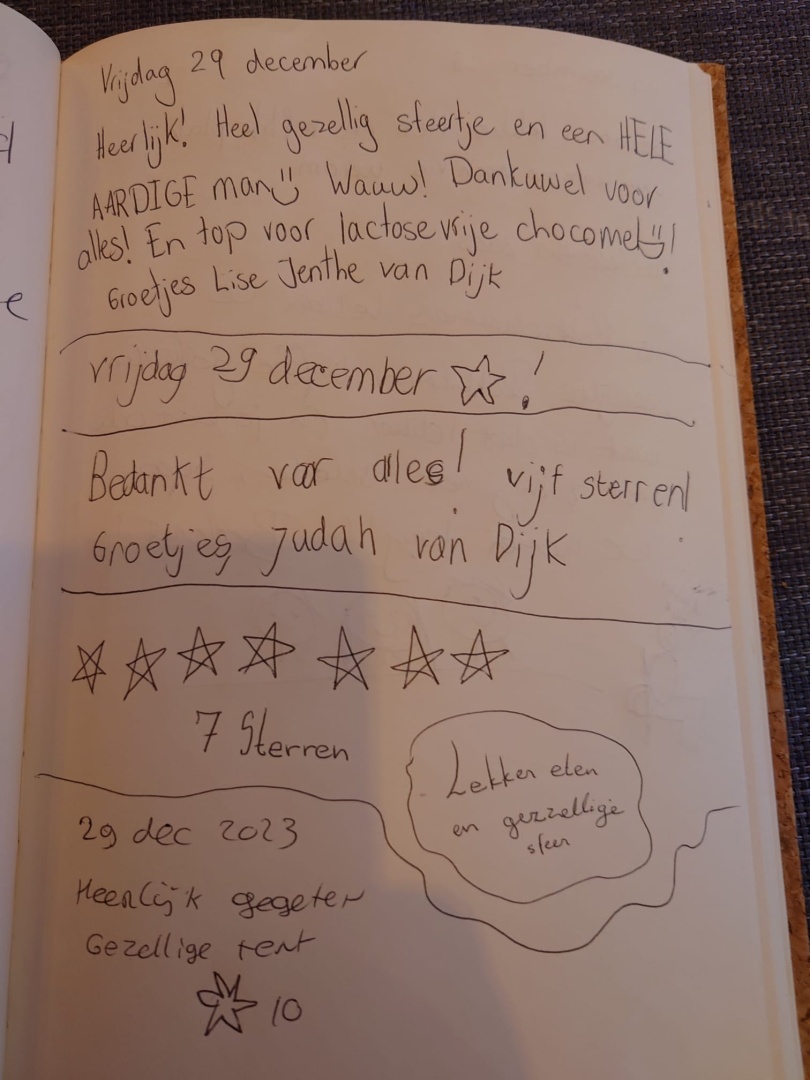 Vrijdag 29 december
Heerlijk! Heel gezellig sfeertje en een HELE
AARDIGE man Wauw! Dankuwel voor
alles! En top voor lactose vrije chocomel!
Groetjes Lise Jenthe van Dijk
vrijdag 29 december !
Bedankt voor alles! vijf sterren!
Groetjes Judah van Dijk
7 Sterren
Lekker eten
en gezzellige
sfeer
29 dec 2023
Heerlijk gegeten
Gezellige tent
10
d
e